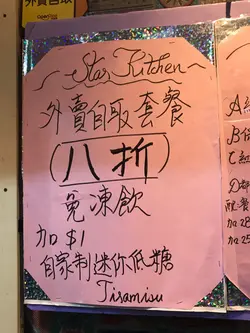 ~ Star Kitchen ~
外賣自取套餐
(八折)
免凍飲
加 $1
自家制迷你低糖
Tiramisu
A
B
C
D
配餐